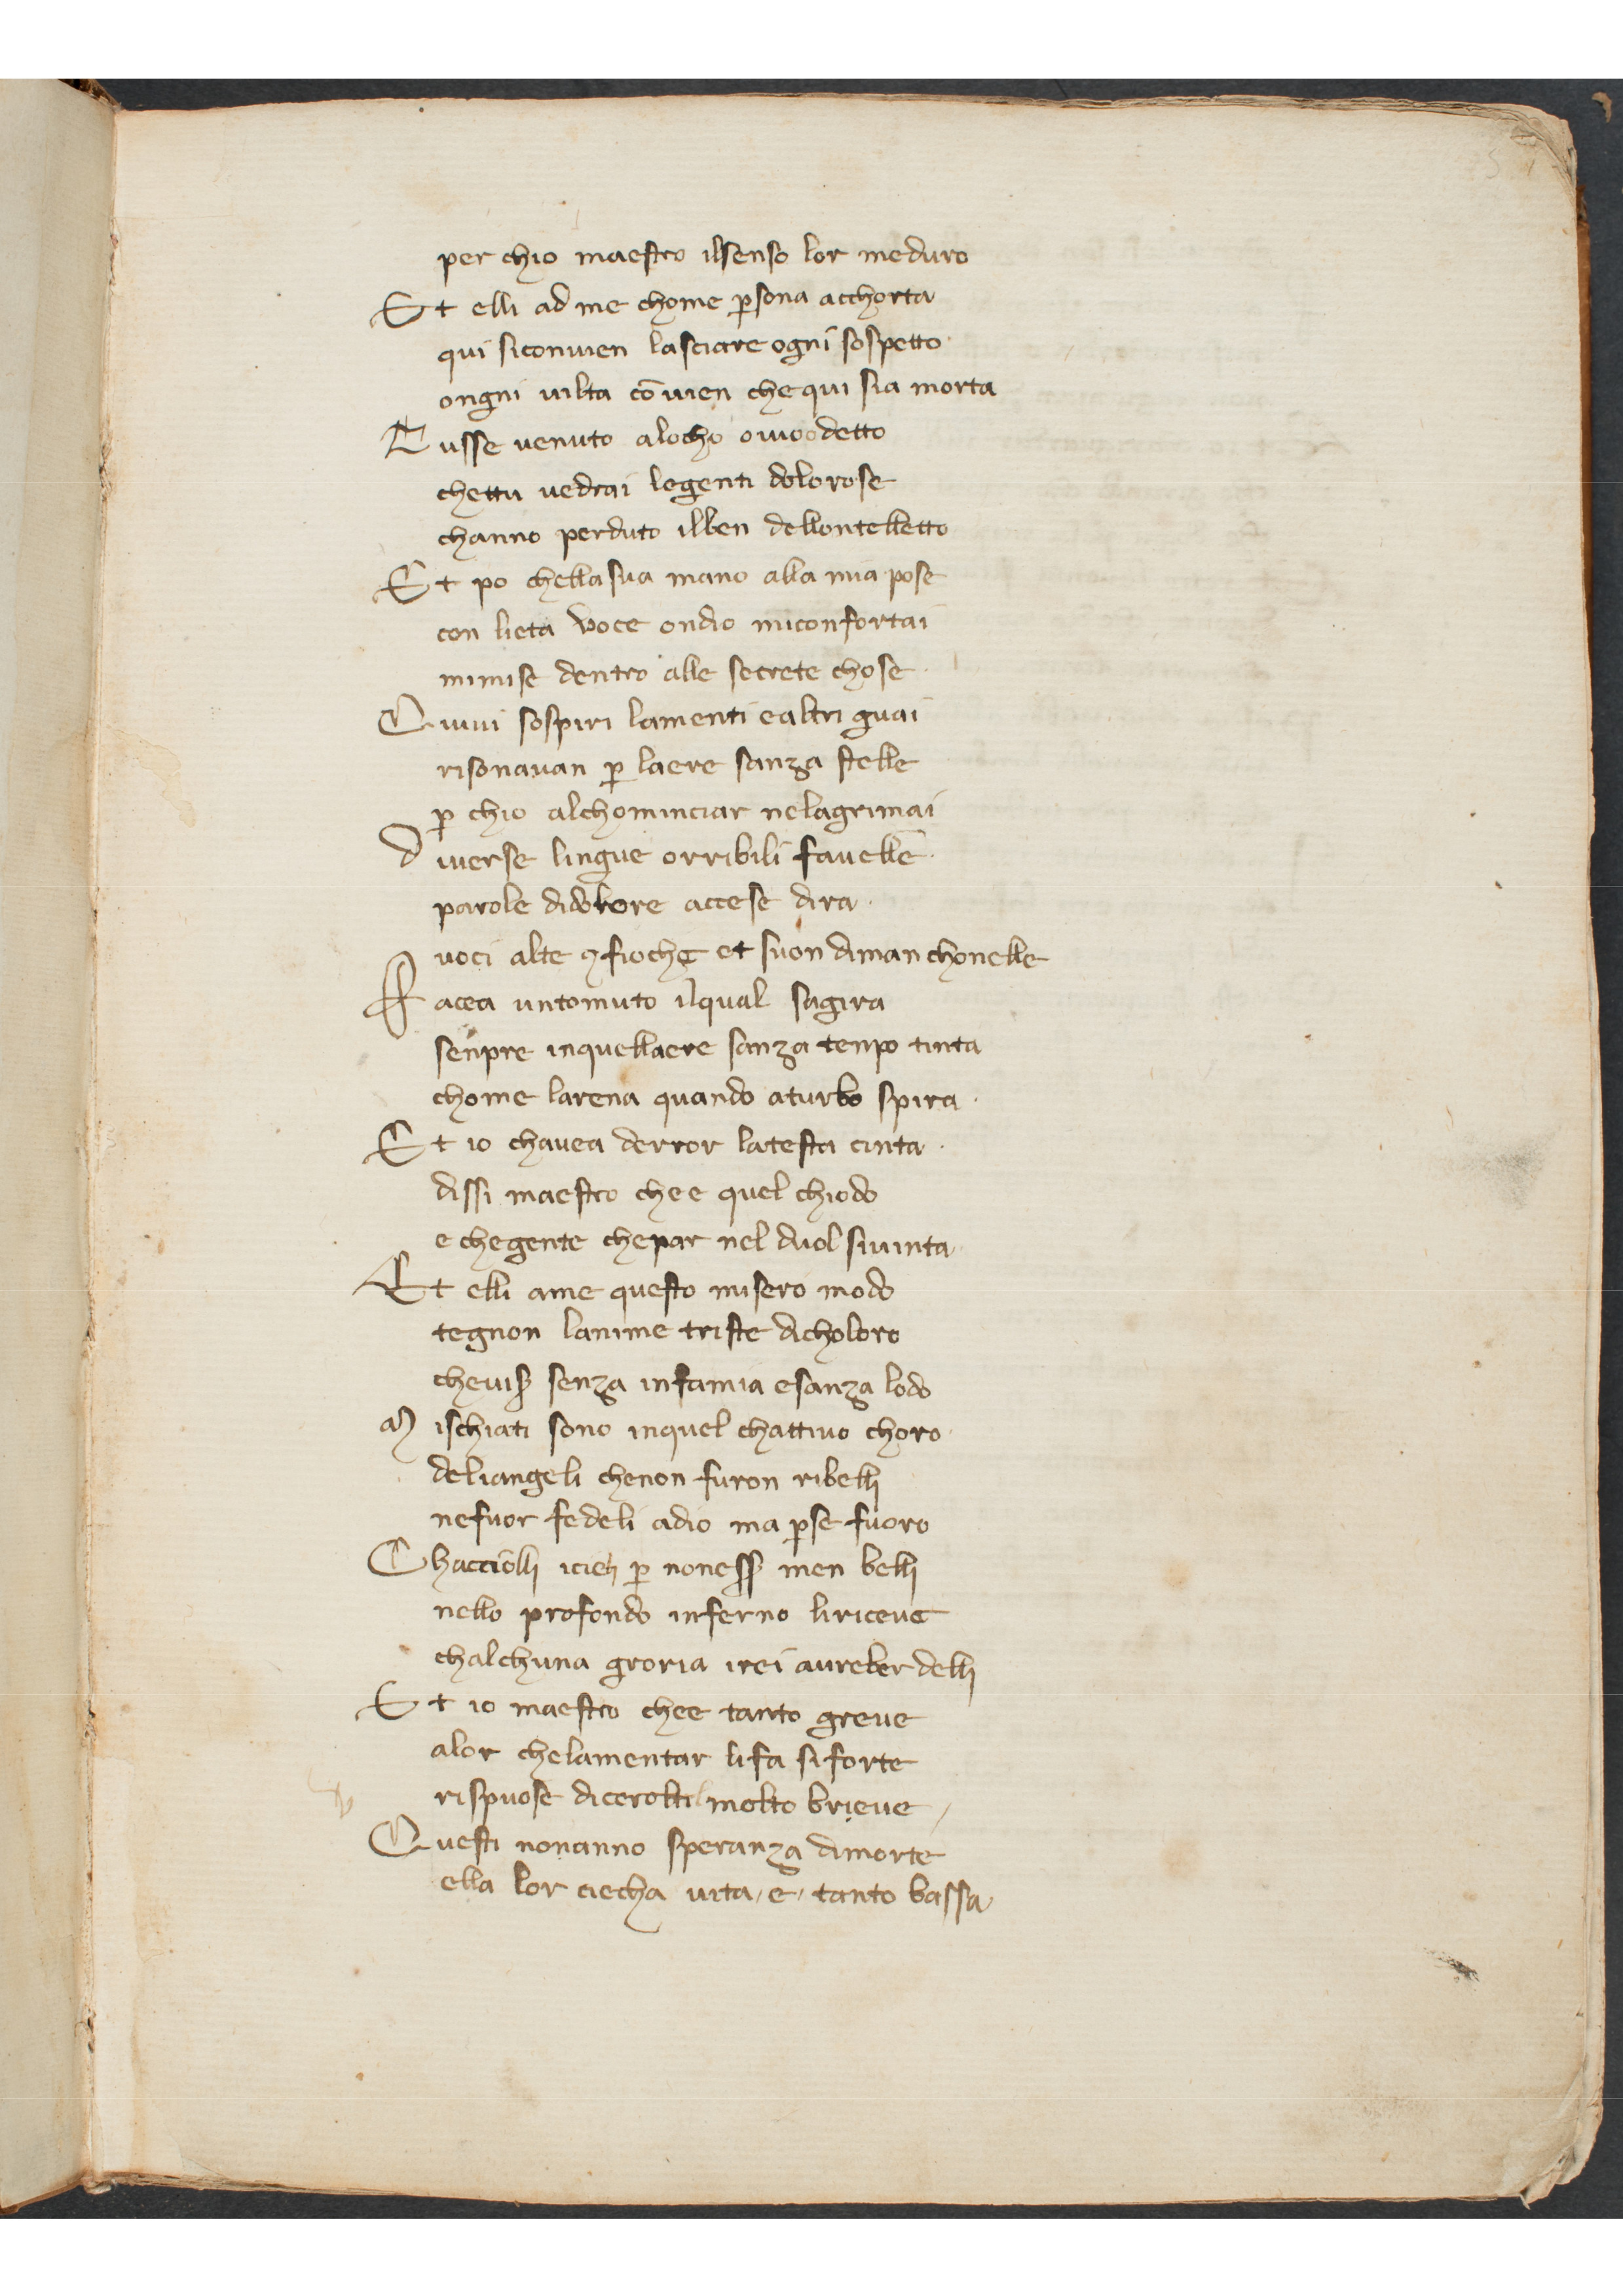 per chio maestro ilsenso lor meduro
Et elli ad me chome ꝑsona acchorta
qui siconuien lasciare ogni sospetto
ongni uilta cōuien chequi sia morta
Nusse venuto alocho ouoodetto
chettu vedrai legenti dolorose
channo perduto ilben dellontelletto
Et po chella sua mano alla mia pose
con lieta voce ondio miconfortai
mimise dentro alle secrete chose
Quiui sospiri lamenti ealtri guai
risonauan ꝑ laere sanza stelle
ꝑ chio alchominciar nelagrimai
diuerse lingue orribili fauelle
parole didolore accese dira
uoci alte ⁊ fioche et suon diman chonelle
Facea untomuto ilqual sagira
senpre inquellaere sanza tenpo tinta
chome larena quando aturbo spira
Et io chauea derror latesta cinta
dissi maestro chee quel chiodo
e chegente chepar nel duol siuinta
Et elli ame questo misero modo
tegnon lanime triste dicholoro
cheuiẞ senza infamia esanza lodo
Mischiati sono inquel chattiuo choro
deliangeli chenon furon ribelli
nefuor fedeli adio ma ꝑse fuoro
Chacciolli iciel ꝑ noneẞ men belli
nello profondo inferno liriceue
chalchuna groria irei aureber delli
Et io maestro chee tanto greue
alor chelamentar lifa siforte
rispuose dicerolti molto brieue
Questi nonanno speranza dimorte
ella lor ciecha uita e tanto bassa